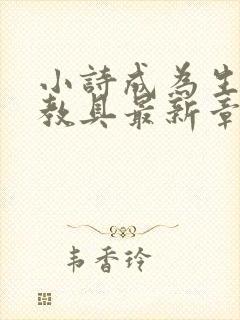 小詩成為生
教具最新章
韦香玲